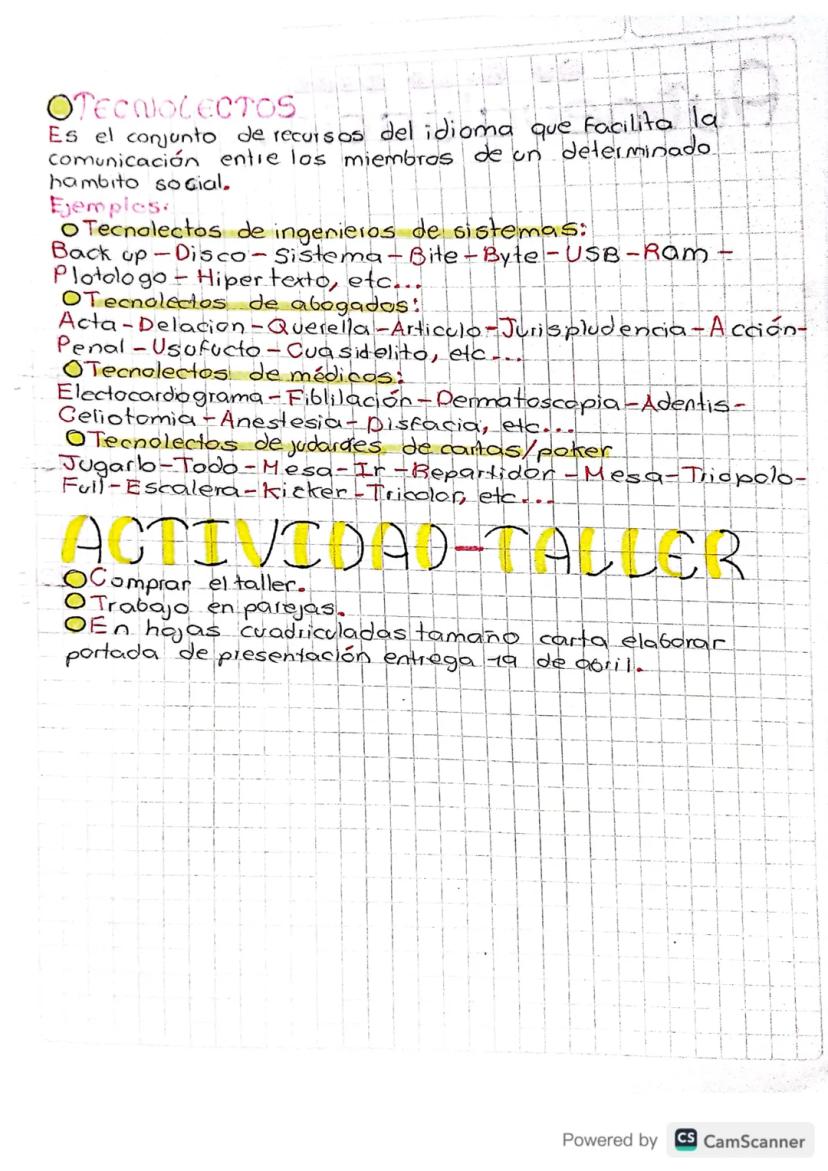 TECNOLECTOS
Es el conjunto de recursos del idioma que facilita la
comunicación entre los miembros de un determinado
hambito social.
Ejemplos:
Tecnolectos de ingenieros de sistemas:
Back up - Disco - Sistema - Bite - Byte - USB - Ram -
Plotologo - Hipertexto, etc...
Tecnolectos de abogados:
Acta - Delacion - Querella - Articulo - Jurispludencia - Acción -
Penal - Usofucto - Cuasidelito, etc...
Tecnolectos de médicos:
Electocardiograma - Fiblilación - Dermatoscopia - Adentis -
Celiotomia - Anestesia - Disfacia, etc...
Tecnolectos de judardes de cartas/poker
Jugarlo - Todo - Mesa - Ir - Repartidor - Mesa - Triopolo -
Full - Escalera - Kicker - Tricolor, etc...
ACTIVIDAD - TALLER
Comprar el taller.
Trabajo en parejas.
En hojas cuadriculadas tamaño carta elaborar
portada de presentación entrega 19 de abril.
Powered by CS CamScanner